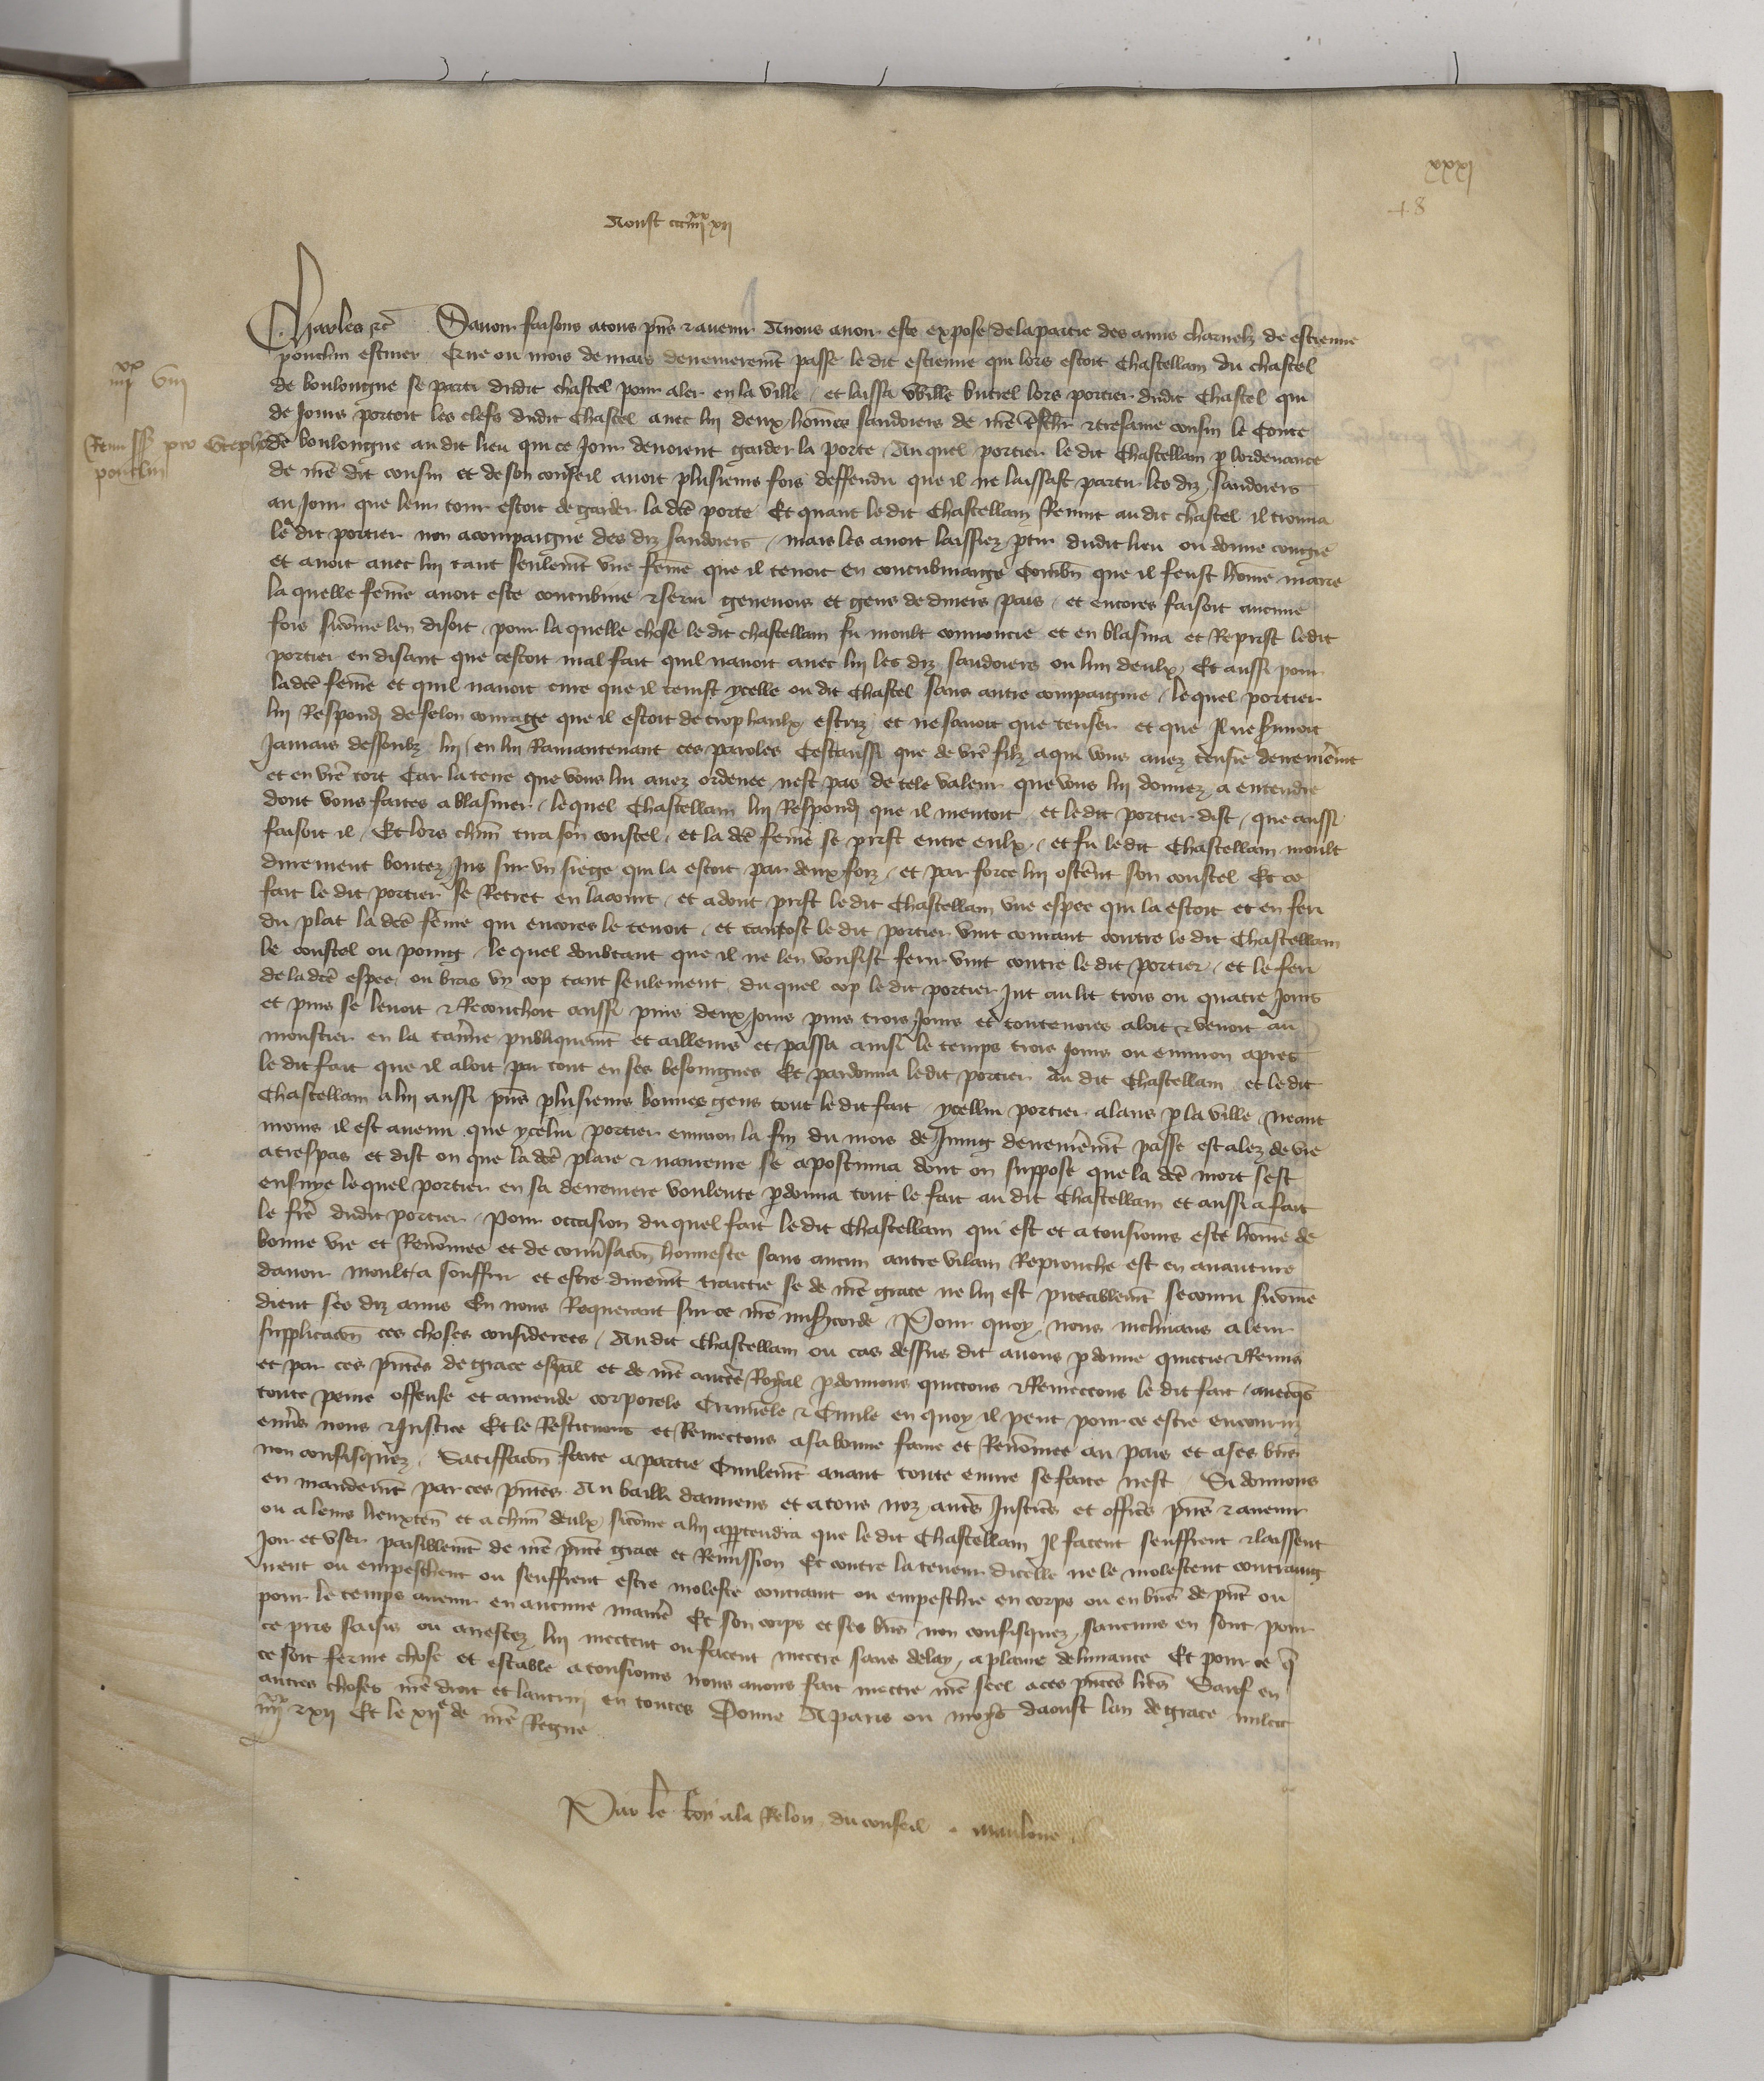 xxxi
48
Aoust ccc iiii xx xii
Charles etc Savoir faisons a tous pns & avenir A nous avoir este expose de la partie des amis charnelz de estienne
ponchin escuier Que ou mois de mars derrenieremt passe le dit estienne qui lors estoit Chastellain du chastel
iiii xx viii
de bouloingne se parti dudit chastel pour aler en la ville et laissa Wille butiel lors portier dudit Chastel qui
de jours portoit les clefs dudit Chastel avec lui deux homes saudoiers de nre treschr & tresame cousin le Conte
Remissio pro Stepho
ponchin
de bouloingne au dit lieu qui ce jour devoient garder la porte Au quel portier le dit Chastellain p lordenance
de nre dit cousin et de son conseil avoit plusieurs fois deffendu que il ne laissast partir les diz saudoiers
au jour que leur tour estoit de garder la dce porte Et quant le dit Chastellain Revint au dit chastel il trouva
le dit portier non acompaigne des diz saudoiers mais les avoit laissiez ptir dudit lieu ou donne congie
et avoit avec lui tant seulemt une feme que il tenoit en concubinaige Combn que il feust home marie
la quelle feme avoit este concubine & servi genevois et gens de divers pais et encores faisoit aucune
fois sicome len disoit pour la quelle chose le dit chastellain fu moult courroucie et en blasma et Reprist ledit
portier en disant que cestoit mal fait quil navoit avec lui les diz saudoiers ou lun deulx Et aussi pour
ladce feme et quil navoit cure que il tenist ycelle ou dit Chastel sans autre compaignie le quel portier
lui Respondi de felon couraige que il estoit de trop haulx estriz et ne savoit que tenser et que il ne serviroit
Jamais dessoubz lui en lui Ramantenant ces paroles Cest aussi que de vre filz a qui vous avez tensie derreniermt
et en vre tort Car la terre que vous lui avez ordenee nest pas de tele valeur que vous lui donnez a entendre
dont vous faites a blasmer lequel Chastellain lui Respondi que il mentoit et le dit portier dist que aussi
faisoit il Et lors chun tira son coustel et la dce feme se prist entre eulx et fu le dit Chastellain moult
durement boutez jus sur un siege qui la estoit par deux foiz et par force lui osterent son coustel Et ce
fait le dit portier se Retret en lacourt et adont prist le dit Chastellain une espee qui la estoit et en feri
du plat la dce feme qui encores le tenoit et tantost le dit portier vint courant contre le dit Chastellain
le coustel ou poing le quel doubtant que il ne len voulsist ferir vint contre le dit portier et le feri
de la dce espee ou bras un cop tant seulement du quel cop le dit portier jut au lit trois ou quatre jours
et puis se levoit & Recouchoit aussi puis deux jours puis trois jours et toutevoies aloit & venoit au
moustier en la taverne publiquemt et ailleurs et passa ainsi le temps trois jours ou environ apres
le dit fait que il aloit par tout en ses besoingnes Et pardonna ledit portier Au dit Chastellain et le dit
Chastellain a lui aussi pns plusieurs bonnes gens tout le dit fait ycellui portier alans p la ville Neant
moins il est avenu que ycelui portier environ la fin du mois de juing derreniermt passe est alez de vie
a trespas et dist on que la dce plaie & navreure se apostuma dont on suppose que la dce mort sest
ensuye lequel portier en sa derreniere voulente pdonna tout le fait au dit Chastellain et aussi a fait
le fre dudit portier Pour occasion du quel fait le dit Chastellain qui est et a tousiours este home de
bonne vie et Renomee et de conversacon honneste sans aucun autre vilain Reprouche est en avanture
davoir moult a souffrir et estre duremt traictie se de nre grace ne lui est piteablemt secouru sicome
dient ses diz amis En nous Requerant sur ce nre misicorde Pour quoy nous inclinans a leur
supplicacon ces choses considerees Au dit Chastellain ou cas dessus dit avons pdonne quictie & Remis
et par ces pntes de grace espal et de nre aucte Royal pdonnons quictons & Remectons le dit fait avecqs
toute peine offense et amende corporele Criminele & Civile en quoy il peut pour ce estre encouruz
envrs nous & justice Et le Restituons et Remectons a sa bonne fame et Renomee au pais et a ses bns
non confisquez Satisfacon faite a partie Civilemt avant toute euvre se faite nest Si donnons
en mandemt par ces pntes Au bailli damiens et a tous noz autrs justices et offics pns & avenir
ou a leurs lieuxten et a chun deulx sicome a lui apptendra que le dit Chastellain Il facent seuffrent & laissent
jor et user paisiblemt de nre pnte grace et Remission Et contre la teneur dicelle ne le molestent contraing
nent ou empeschent ou seuffrent estre moleste contraint ou empeschie en corps ou en bns de pnt ou
pour le temps avenir en aucune maniere Et son corps et ses bns non confisquez saucuns en sont pour
ce pris saisis ou arrestez lui mectent ou facent mectre sans delay a plaine delivrance Et pour ce q
ce soit ferme chose et estable a tousiours nous avons fait mectre nre seel a ces pntes lres Sauf en
autres choses nre droit et lautrui en toutes Donne A paris ou mois daoust lan de grace mil ccc
iiii xx & xii Et le xii e de nre Regne
Par le Roy a la Relon du conseil . mauloue